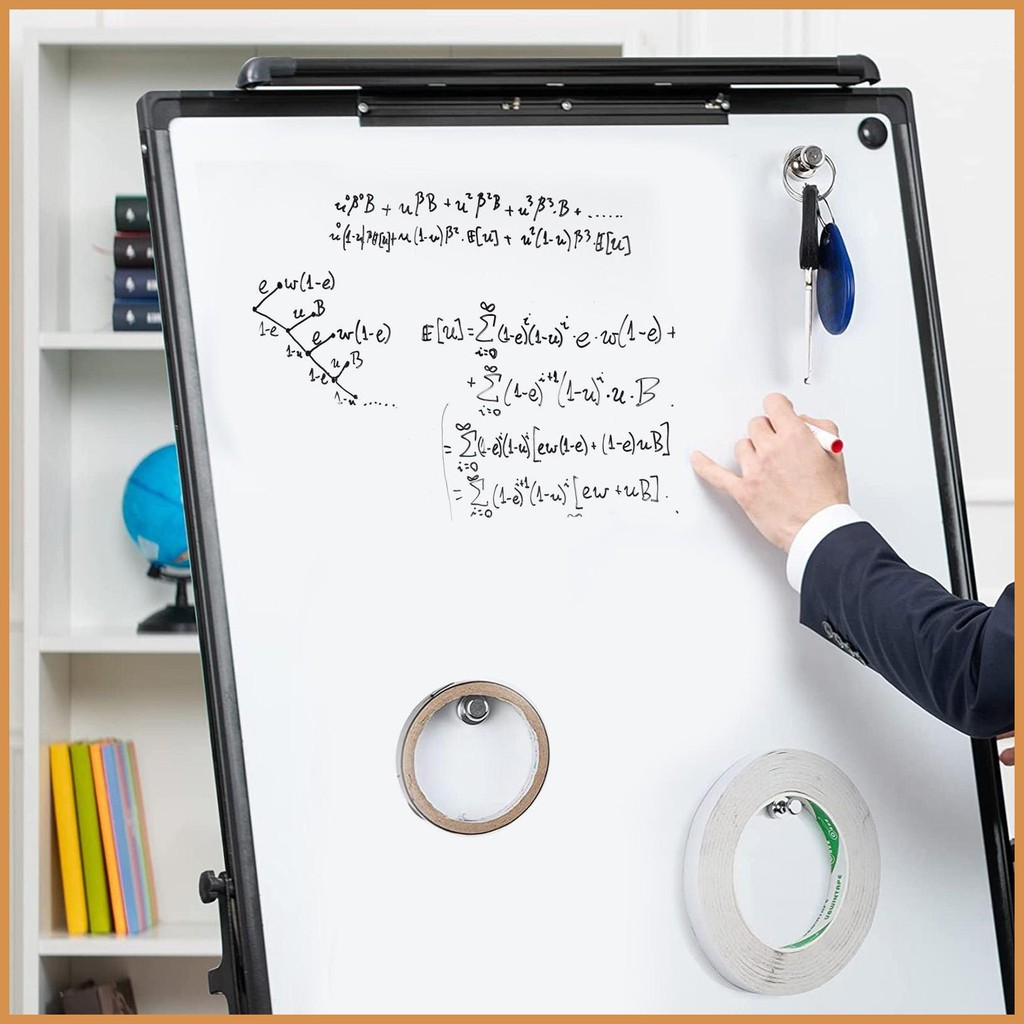 u⁰β⁰B + uβB + u²β²B + u³β³·B + ......
u⁰(1-u)β𝔼[u]+u(1-u)β²·𝔼[u] + u²(1-u)β³·𝔼[u]
e w(1-e)
1-e u B
1-u e w(1-e)
1-e u B
1-u ......
𝔼[u] = ∞∑i=0 (1-e)ⁱ(1-u)ⁱ·e·w(1-e) +
+ ∞∑i=0 (1-e)ⁱ⁺¹(1-u)ⁱ·u·B.
= ∞∑i=0 (1-e)ⁱ(1-u)ⁱ[ew(1-e) + (1-e)uB]
= ∞∑i=0 (1-e)ⁱ⁺¹(1-u)ⁱ[ew + uB].
YOWINTAPE